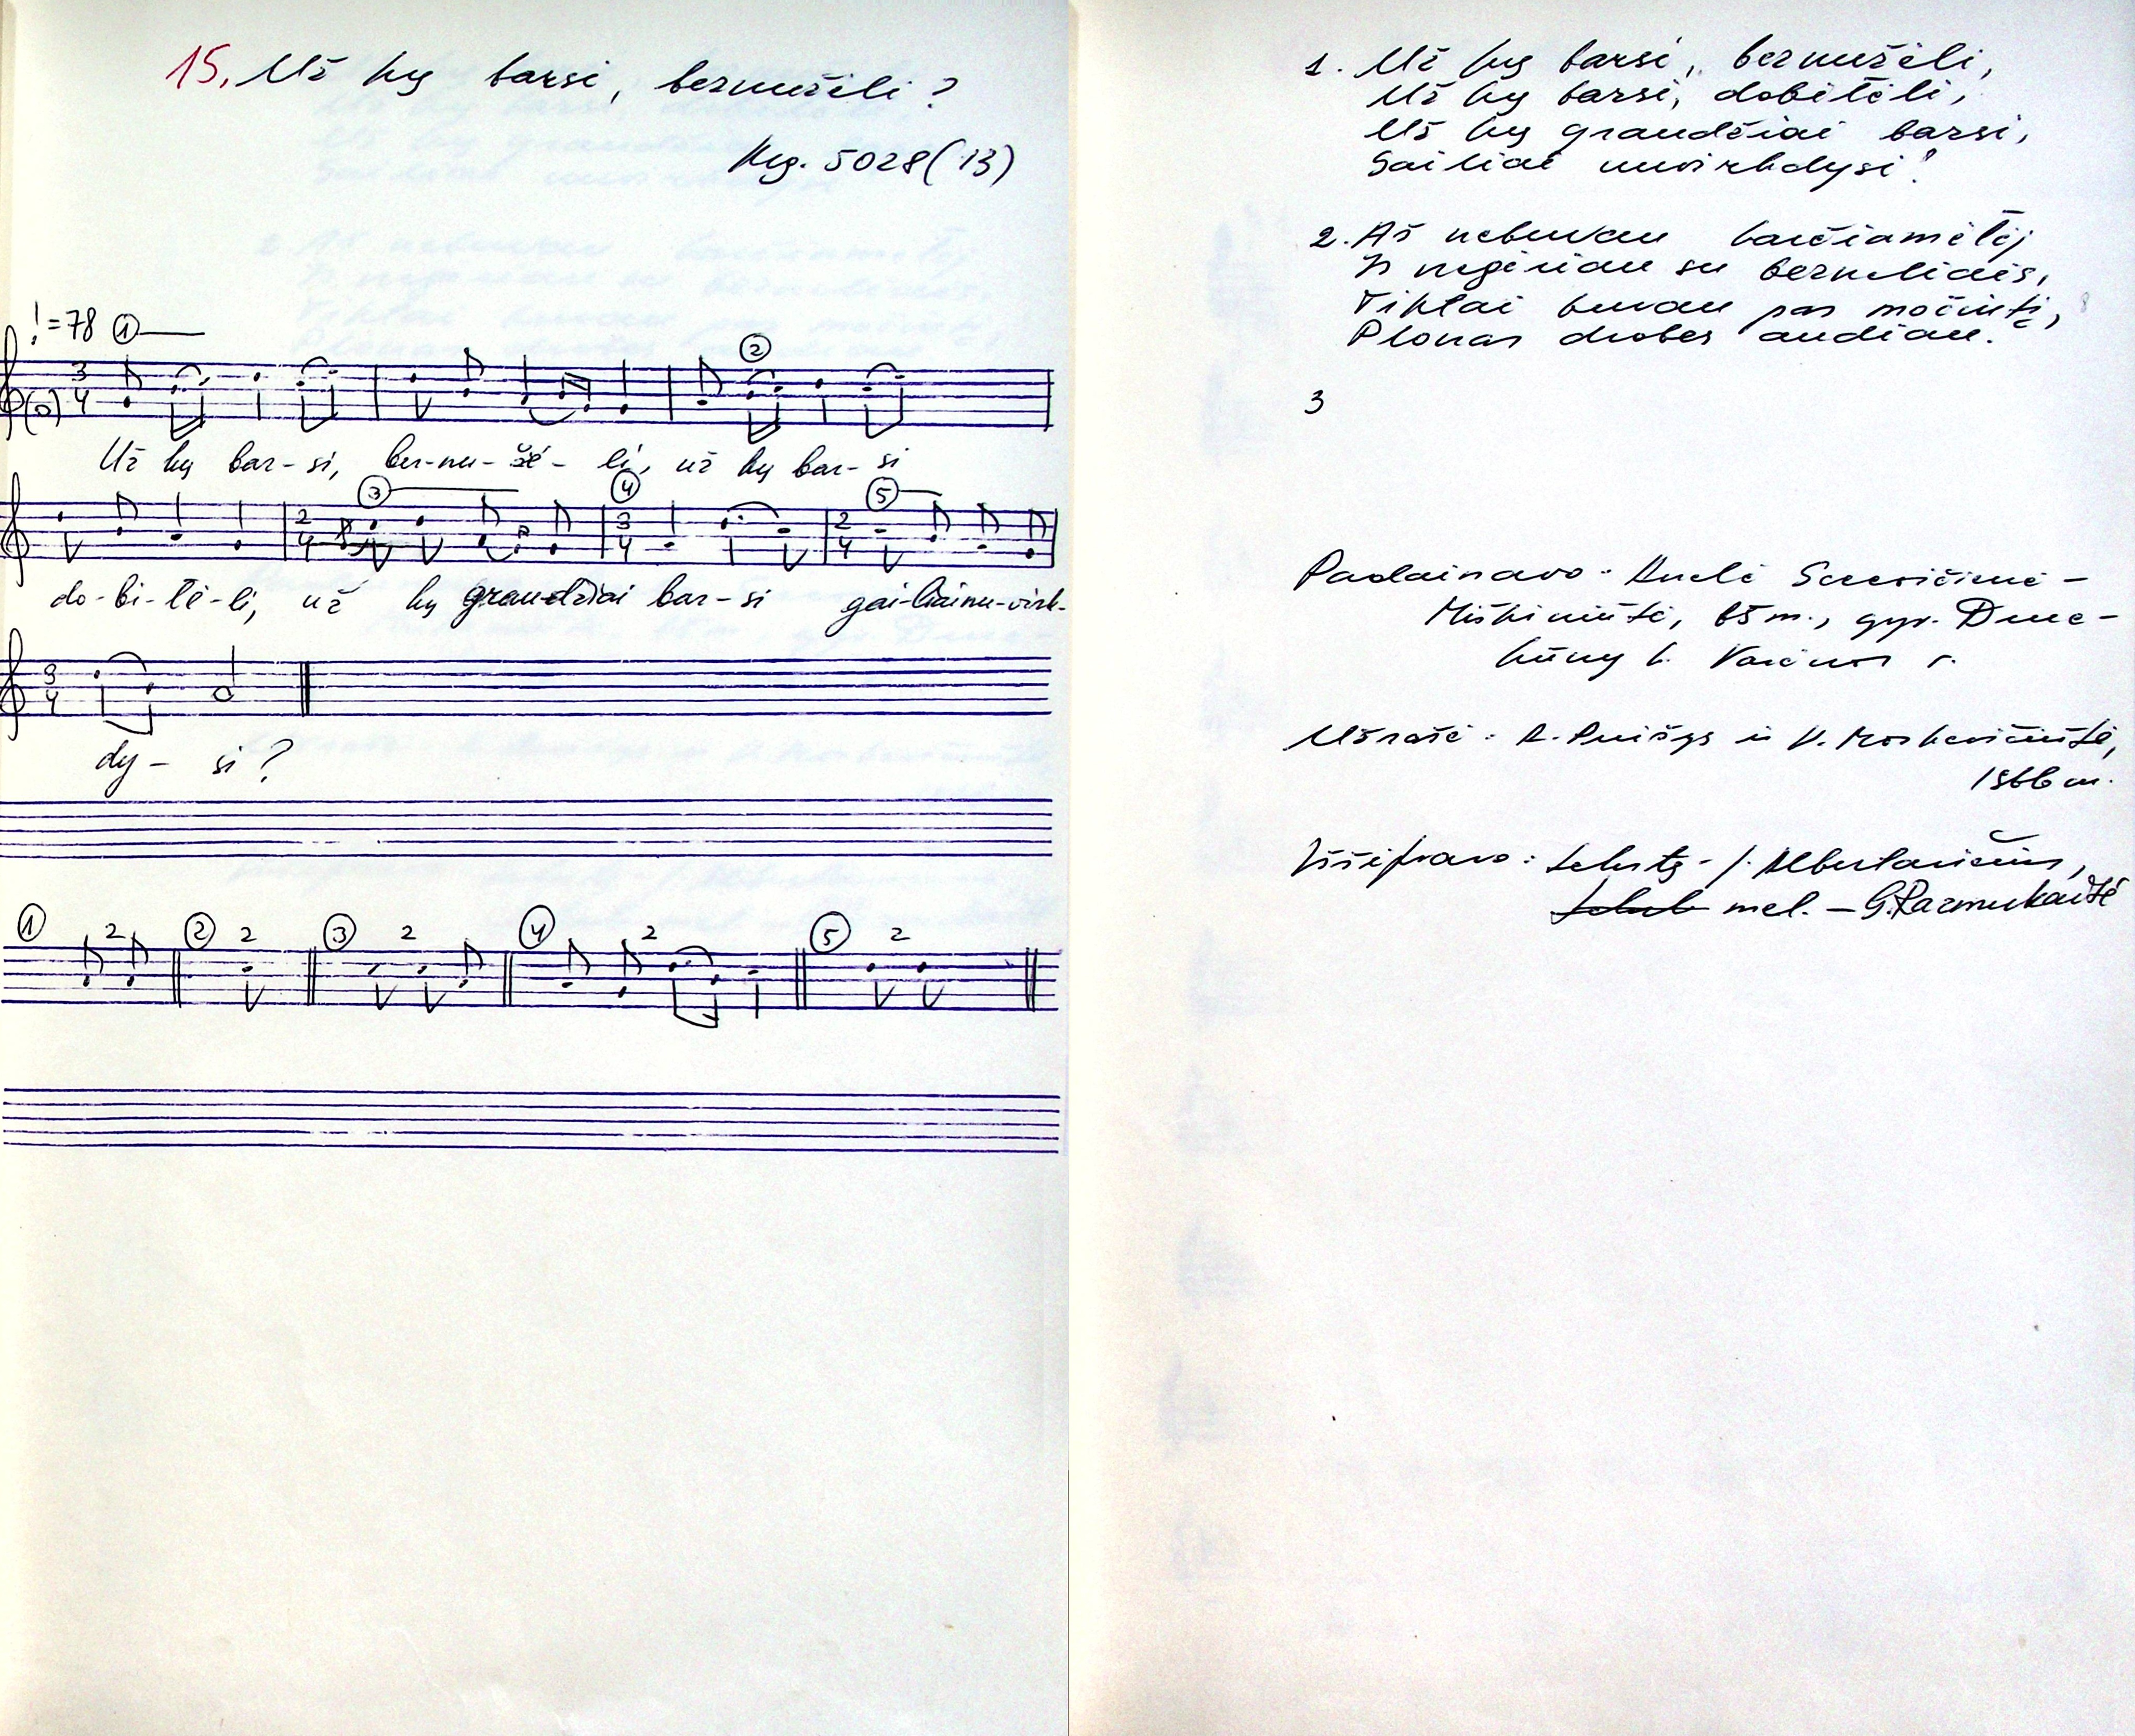 15. Už ką barsi, bernužėli?
Mg. 5028(13)
=78 1
3
4
Už ką bar-si, ber-nu-žė-li, už ką bar-si
2
do-bi-lė-li, už ką graudžiai bar-si gai-liai nu-virk-
2
4
3
3
4
4
2
4
5
3
4
dy-si?
1 2 2 2 3 2 4 2 5 2
1. Už ką barsi, bernužėli,
Už ką barsi, dobilėli,
Už ką graudžiai barsi,
Gailiai nuvirkdysi?
2. Aš nebuvau karčiamėlėj
Ir negėriau su berneliais,
Tiktai buvau pas močiutę,
Plonas drobes audžiau.
3
Padainavo: Anelė
Miškiniūtė, 65 m., gyv.
k. Varėnos r.
Užrašė: A. ir V.
1966 m.
Iššifravo: tekstą - J.
mel. - G. Razmukaitė